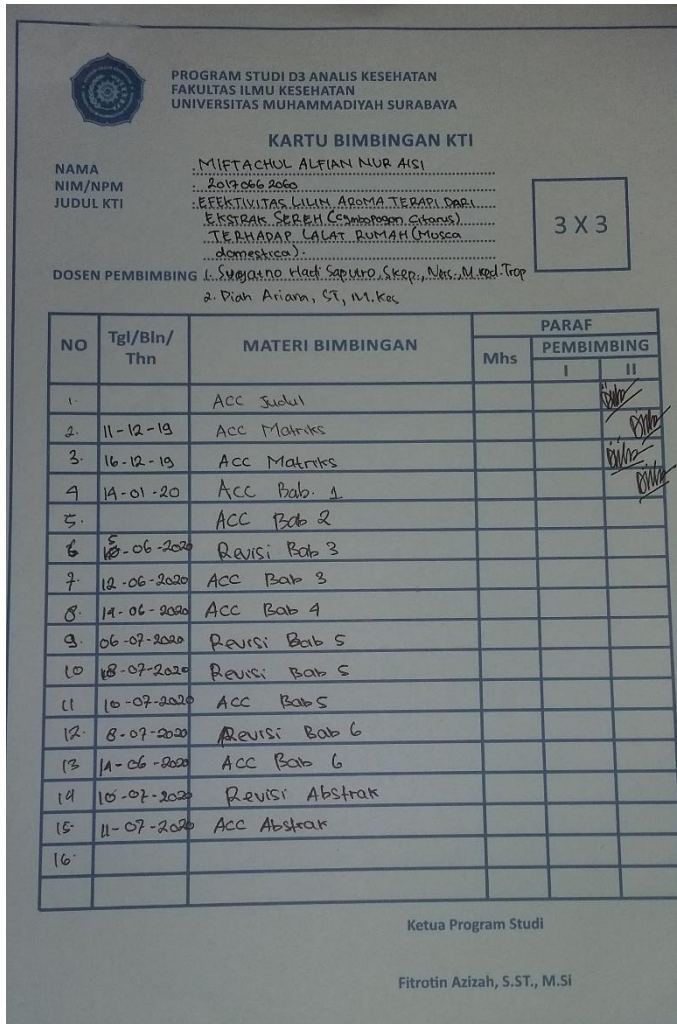 PROGRAM STUDI D3 ANALIS KESEHATAN
FAKULTAS ILMU KESEHATAN
UNIVERSITAS MUHAMMADIYAH SURABAYA
KARTU BIMBINGAN KTI
NAMA : MIFTACHUL ALFIAN NUR AISI
NIM/NPM : 2017066 2060
JUDUL KTI : EFEKTIVITAS LILIN AROMA TERAPI DARI
EKSTRAK SEREH (Cymbopogon Citarus)
TERHADAP LALAT RUMAH (Musca
domestica).
3 X 3
DOSEN PEMBIMBING 1. Suyatno Hadi Saputro, Skep., Ners., M.ked.Trop
2. Diah Ariana, ST, M.Kes
NO Tgl/Bln/Thn MATERI BIMBINGAN PARAF
Mhs PEMBIMBING
I II
1. Acc Judul
2. 11-12-19 Acc Matriks
3. 16-12-19 Acc Matriks
4 14-01-20 Acc Bab. 1
5. Acc Bab 2
6 -06-2020 Revisi Bab 3
7. 12-06-2020 Acc Bab 3
8. 14-06-2020 Acc Bab 4
9. 06-07-2020 Revisi Bab 5
10 8-07-2020 Revisi Bab 5
11 10-07-2020 Acc Bab 5
12. 8-07-2020 Revisi Bab 6
13 14-06-2020 Acc Bab 6
14 10-07-2020 Revisi Abstrak
15 11-07-2020 Acc Abstrak
16.
Ketua Program Studi
Fitrotin Azizah, S.ST., M.Si